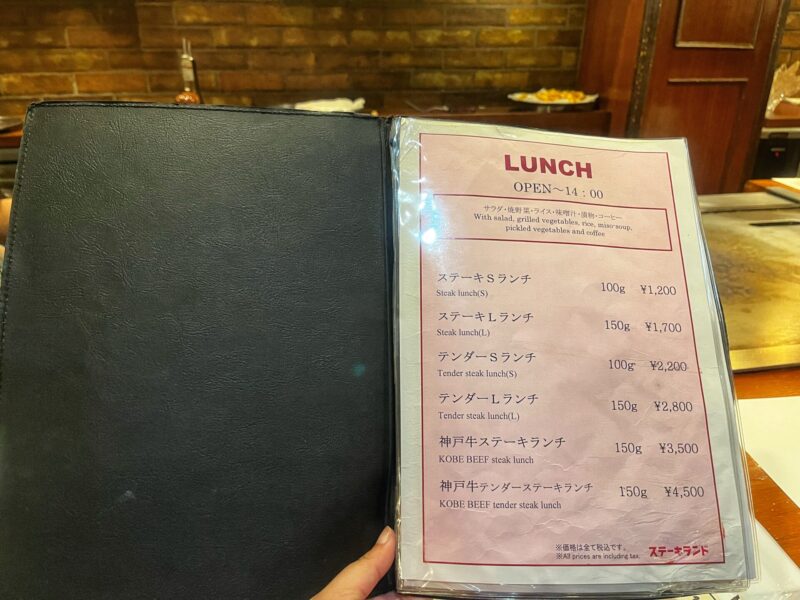 LUNCH
OPEN～14：00
サラダ・焼野菜・ライス・味噌汁・漬物・コーヒー
With salad, grilled vegetables, rice, miso soup,
pickled vegetables and coffee
ステーキSランチ 100g ¥1,200
Steak lunch(S)
ステーキLランチ 150g ¥1,700
Steak lunch(L)
テンダーSランチ 100g ¥2,200
Tender steak lunch(S)
テンダーLランチ 150g ¥2,800
Tender steak lunch(L)
神戸牛ステーキランチ 150g ¥3,500
KOBE BEEF steak lunch
神戸牛テンダーステーキランチ 150g ¥4,500
KOBE BEEF tender steak lunch
※価格は全て税込です。
※All prices are including tax.
ステーキランド